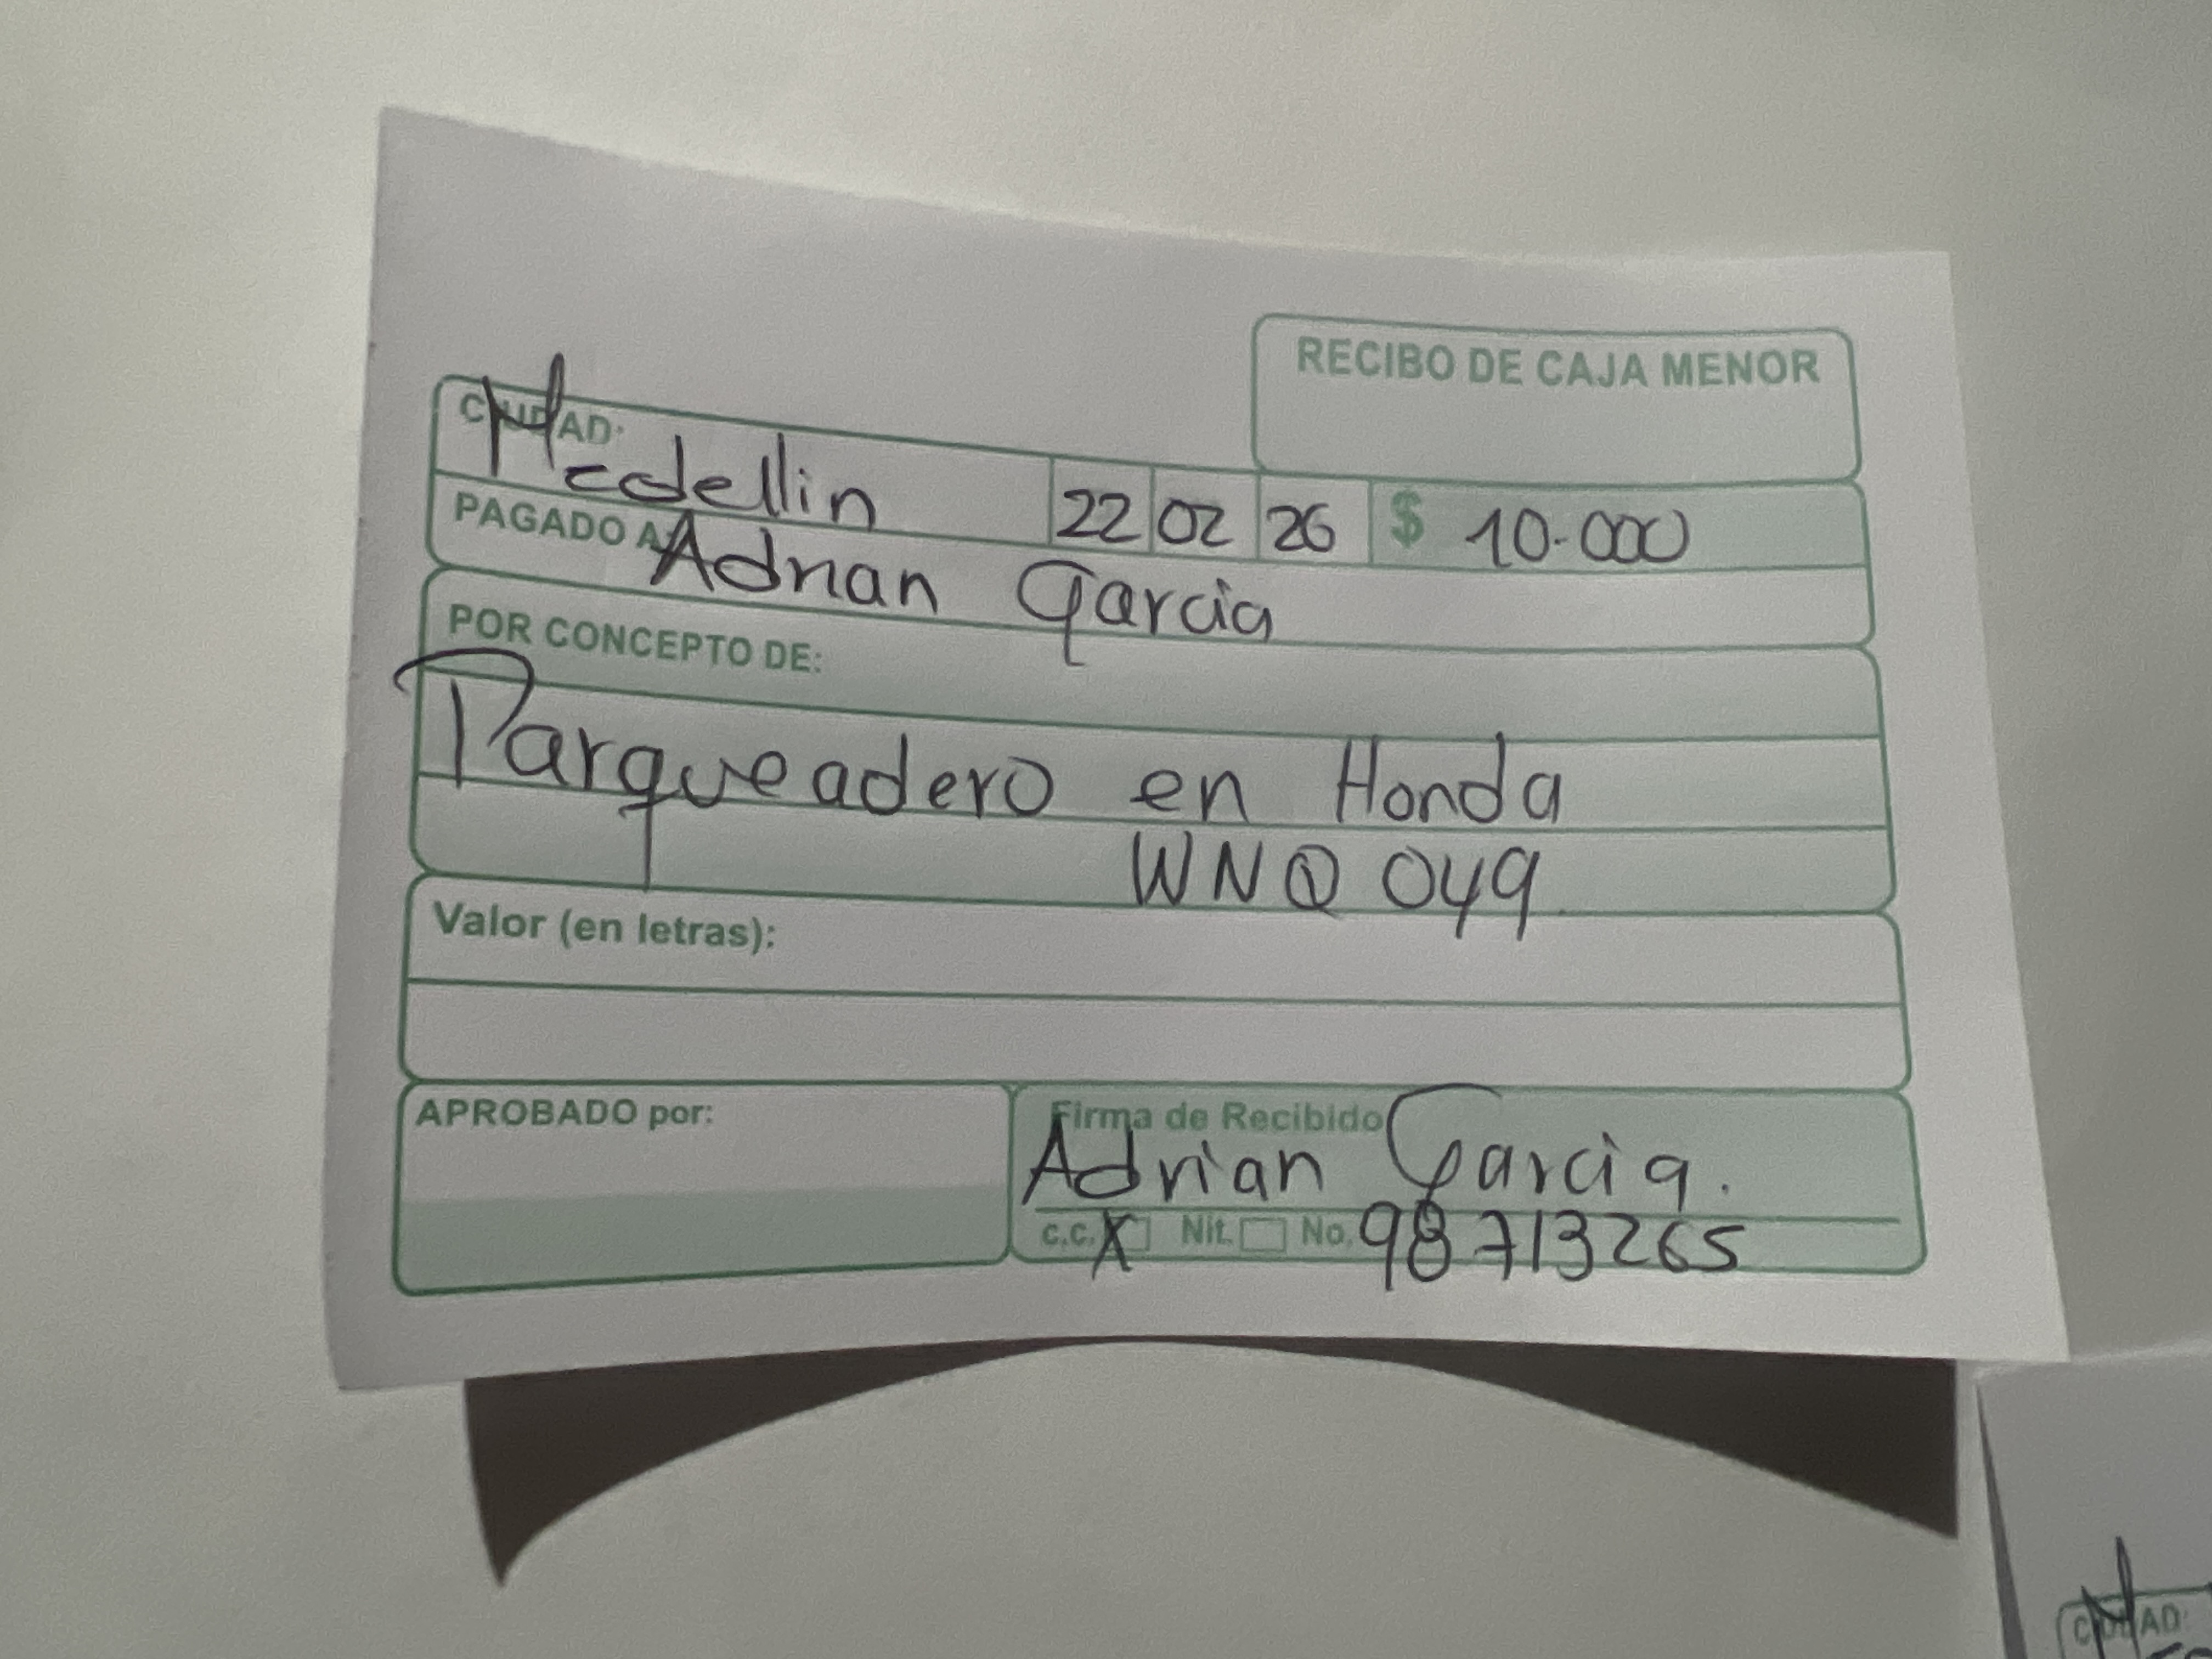 RECIBO DE CAJA MENOR
CIUDAD: Medellin 22 02 26 $ 10.000
PAGADO A: Adrian Garcia
POR CONCEPTO DE:
Parqueadero en Honda
WNQ 049
Valor (en letras):
APROBADO por:
Firma de Recibido
Adrian Garcia.
c.c. X Nit. No. 98713265
CIUDAD: